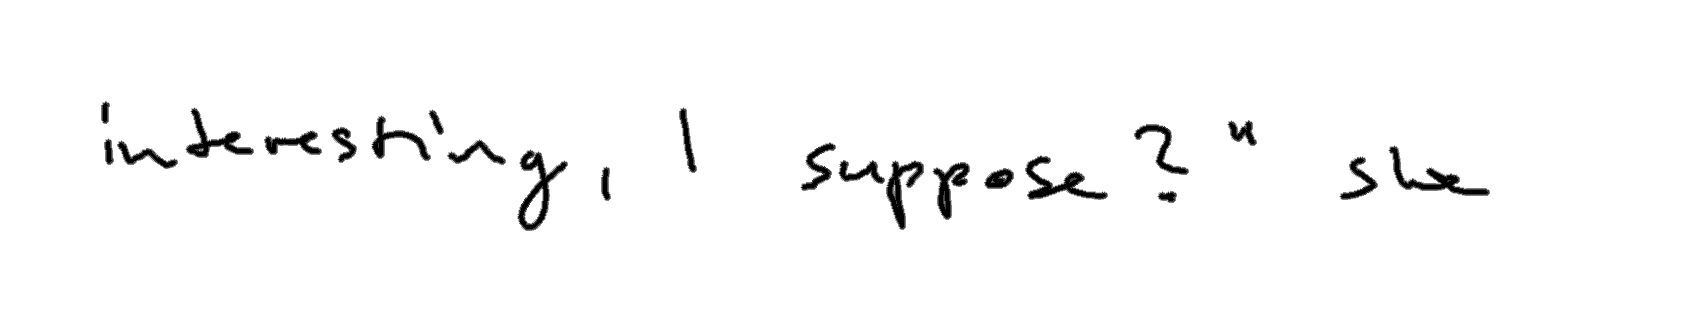 interesting, I suppose?" she